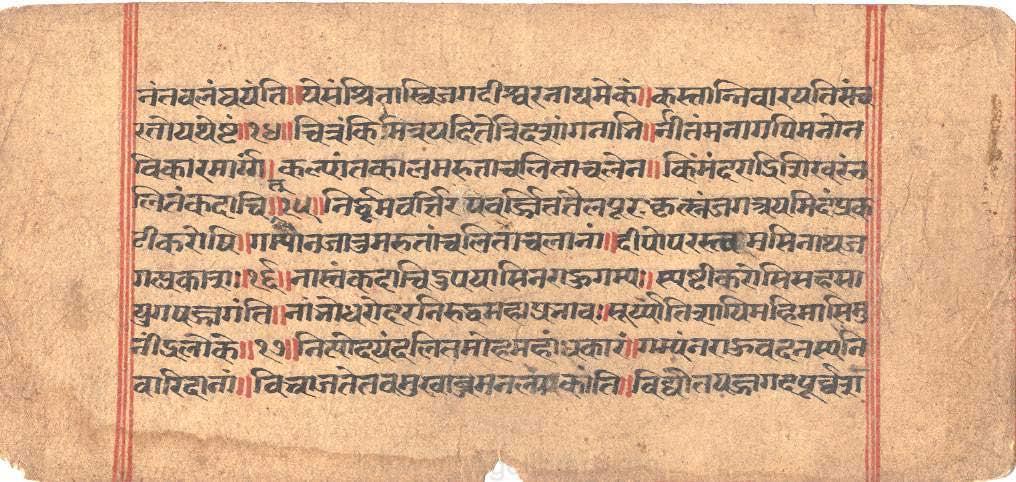 नंतवलंघयंति॥येसंश्रितास्त्रिजगदीश्वरनाथमेकं॥कस्तान्निवारयतिसंच
रतोयथेष्टं॥१४॥चित्रंकिमत्रयदितेत्रिदशांगनाभि॥र्नीतंमनागपिमनोन
विकारमार्गं॥कल्पांतकालमरुताचलिताचलेन॥किंमंदराद्रिशिखरंच
लितंकदाचित्॥१५॥निर्द्धूमवर्त्तिरपवर्ज्जिततैलपूरःकृत्स्नंजगत्रयमिदंप्रक
टीकरोषि॥गम्योनजातुमरुतांचलिताचलानां॥दीपोपरस्त्वमसिनाथज
गत्प्रकाशः॥१६॥नास्तंकदाचिदुपयासिनराहुगम्यः॥स्पष्टीकरोसिसहसा
युगपज्जगंति॥नांभोधरोदरनिरुद्धमहाप्रभावःसूर्य्यातिशायिमहिमासिमु
नींद्रलोके॥१७॥नित्योदयंदलितमोहमहांधकारं॥गम्यंनराहुवदनस्यनि
वारिदानां॥विभ्राजतेतवमुखाब्जमनल्पकांति॥विद्योतयज्जगदपूर्व्वशशा